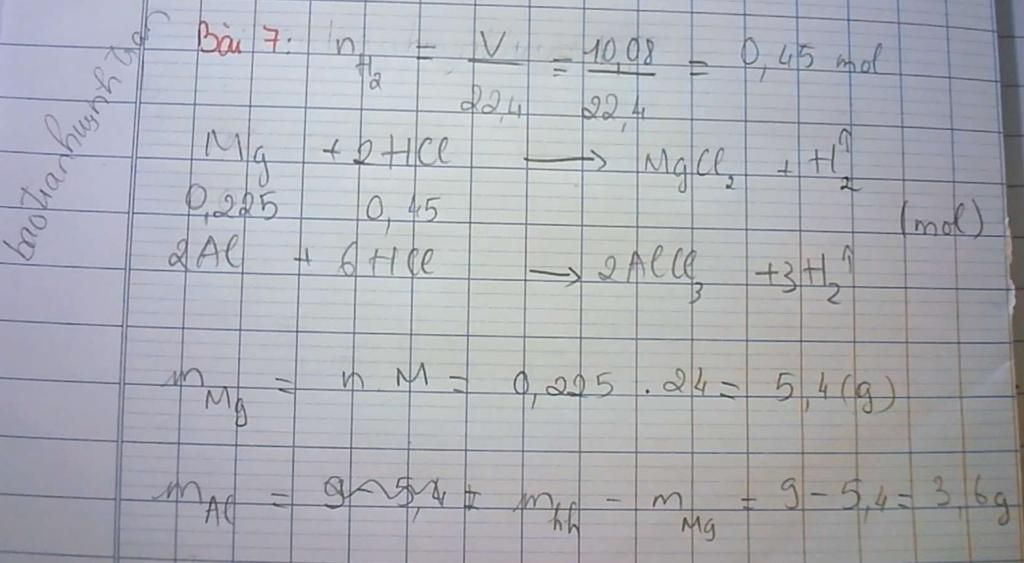 Bài 7: n H₂ = V/22,4 = 10,08/22,4 = 0,45 mol
Mg + 2HCl → MgCl₂ + H₂↑
0,225 0,45 (mol)
2Al + 6HCl → 2AlCl₃ + 3H₂↑
m Mg = n . M = 0,225 . 24 = 5,4(g)
m Al = 9 - 5,4 = m hh - m Mg = 9 - 5,4 = 3,6g